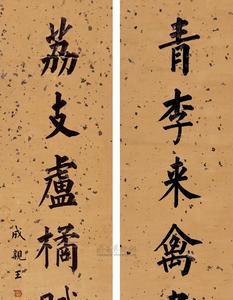 青李来禽
荔支盧橘
成親王